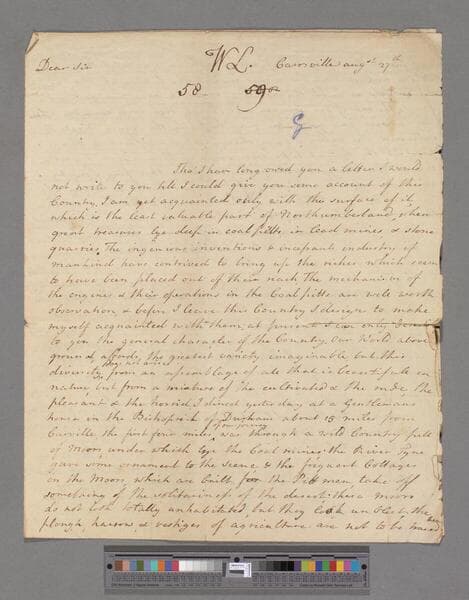 W L.
Dear Sir Carrville augst 27th
58 59
Tho' I have long owed you a letter I would
not write to you till I could give you some account of this
Country, I am yet acquainted only with the surface of it
which is the least valuable part of Northumberland, where
great treasures lye deep in coal pitts, in Lead mines & stone
quarries, The ingenious inventions & incessant industry of
mankind have contrived to bring up the riches which seem
to have been placed out of their reach the mechanism of
the engines & their operations in the Coal pitts are well worth
observation & before I leave this Country I design to make
myself acquainted with them, at present I can only
to you the general character of the Country, Our World above
ground affords the greatest variety imaginable but this
diversity does not arise from an assemblage of all that is beautifull in
nature but from a mixture of the cultivated & the rude the
pleasant & the horrid, I dined yesterday at a Gentlemans
house in the Bishoprick of Durham about 18 miles from
Carrville the first four miles of our journey was through a wild Country full
of Moors, under which lye the Coal mines, the River Tyne
gave some ornament to the scene & the frequent Cottages
on the Moors, which are built for the Pit man take off
something of the solitariness of the desert: these moors
do not look totally unhabitated, but they look unblest, the
plough, harrow & vestiges of agriculture are not to be traced